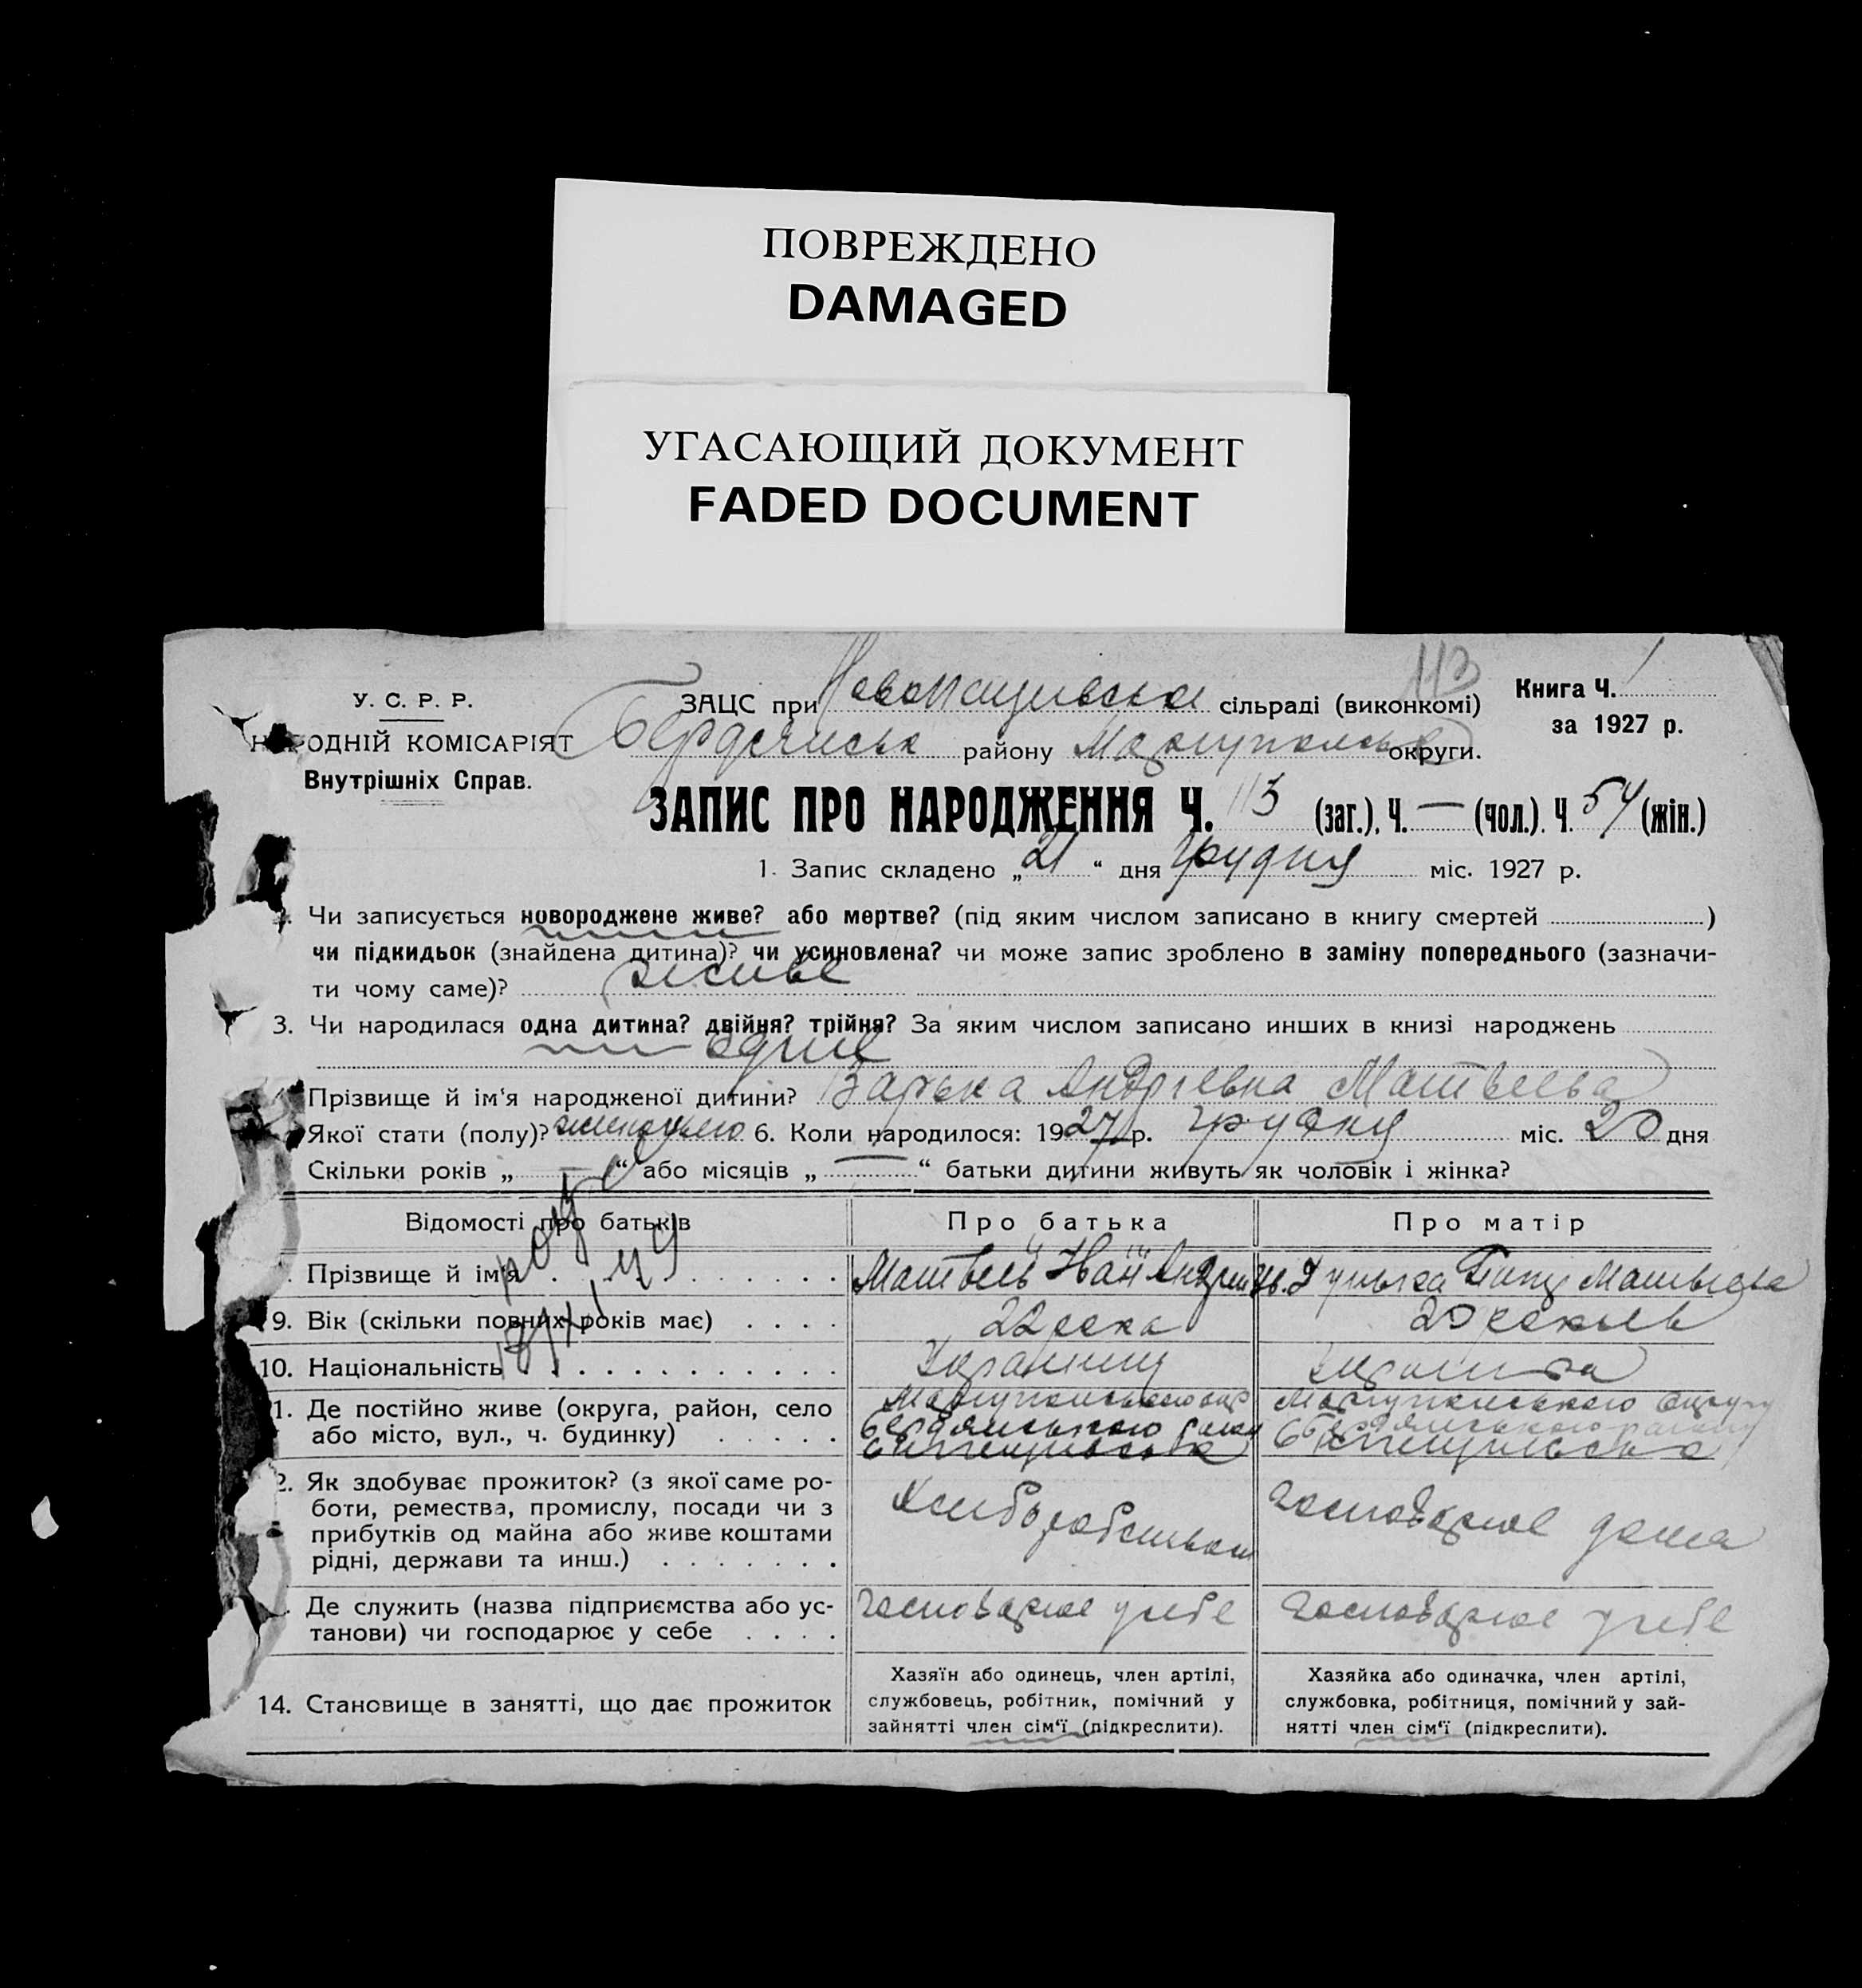 ПОВРЕЖДЕНО
DAMAGED
УГАСАЮЩИЙ ДОКУМЕНТ
FADED DOCUMENT
113
У. С. Р. Р.
НАРОДНІЙ КОМІСАРІЯТ
Внутрішніх Справ.
ЗАЦС при сільраді (виконкомі)
Бердянськ району Маріупольськ округи.
Книга Ч. 1
за 1927 р.
ЗАПИС ПРО НАРОДЖЕННЯ Ч. 113 (заг.). Ч. — (чол.). Ч. 54 (жін.)
1. Запис складено „21“ дня грудня міс. 1927 р.
Чи записується новороджене живе? або мертве? (під яким числом записано в книгу смертей )
чи підкидьок (знайдена дитина)? чи усиновлена? чи може запис зроблено в заміну попереднього (зазначи-
ти чому саме)? живе
3. Чи народилася одна дитина? двійня? трійня? За яким числом записано инших в книзі народжень
одне
Прізвище й ім'я народженої дитини? Андріевна Матвеева
Якої стати (полу)? 6. Коли народилося: 1927 р. грудня міс. 20 дня
Скільки років „—“ або місяців „—“ батьки дитини живуть як чоловік і жінка?
Відомості про батьків Про батька Про матір
Прізвище й ім'я Матвеев Іван Андрей
9. Вік (скільки повних років має) 22 рока 20 років
10. Національність Українец Українка
1. Де постійно живе (округа, район, село
або місто, вул., ч. будинку)
Маріупольського окр Маріупольського округу
Бердянського району Бердянського району
2. Як здобуває прожиток? (з якої саме ро-
боти, ремества, промислу, посади чи з
прибутків од майна або живе коштами
рідні, держави та инш.)
Хліборобством господарює дома
Де служить (назва підприємства або ус-
танови) чи господарює у себе
господарює усебе господарює усебе
14. Становище в занятті, що дає прожиток
Хазяїн або одинець, член артілі,
службовець, робітник, помічний у
зайнятті член сім'ї (підкреслити).
Хазяйка або одиначка, член артілі,
службовка, робітниця, помічний у зай-
нятті член сім'ї (підкреслити).